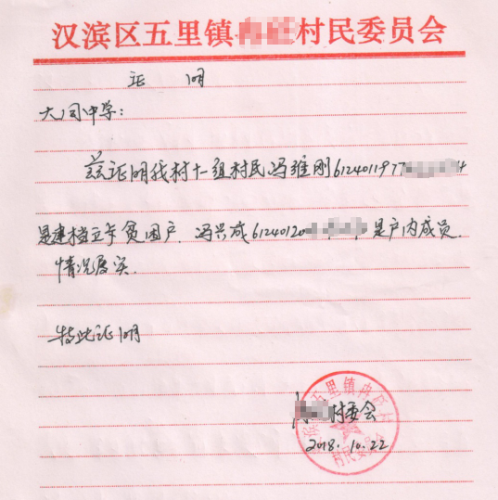 汉滨区五里镇 村民委员会
证 明
大同中学:
兹证明我村十一组村民冯维刚612401197 4
是建档立卡贫困户. 冯兴成6124012 是户内成员.
情况属实.
特此证明
村委会
2018.10.22
五里镇
村民委